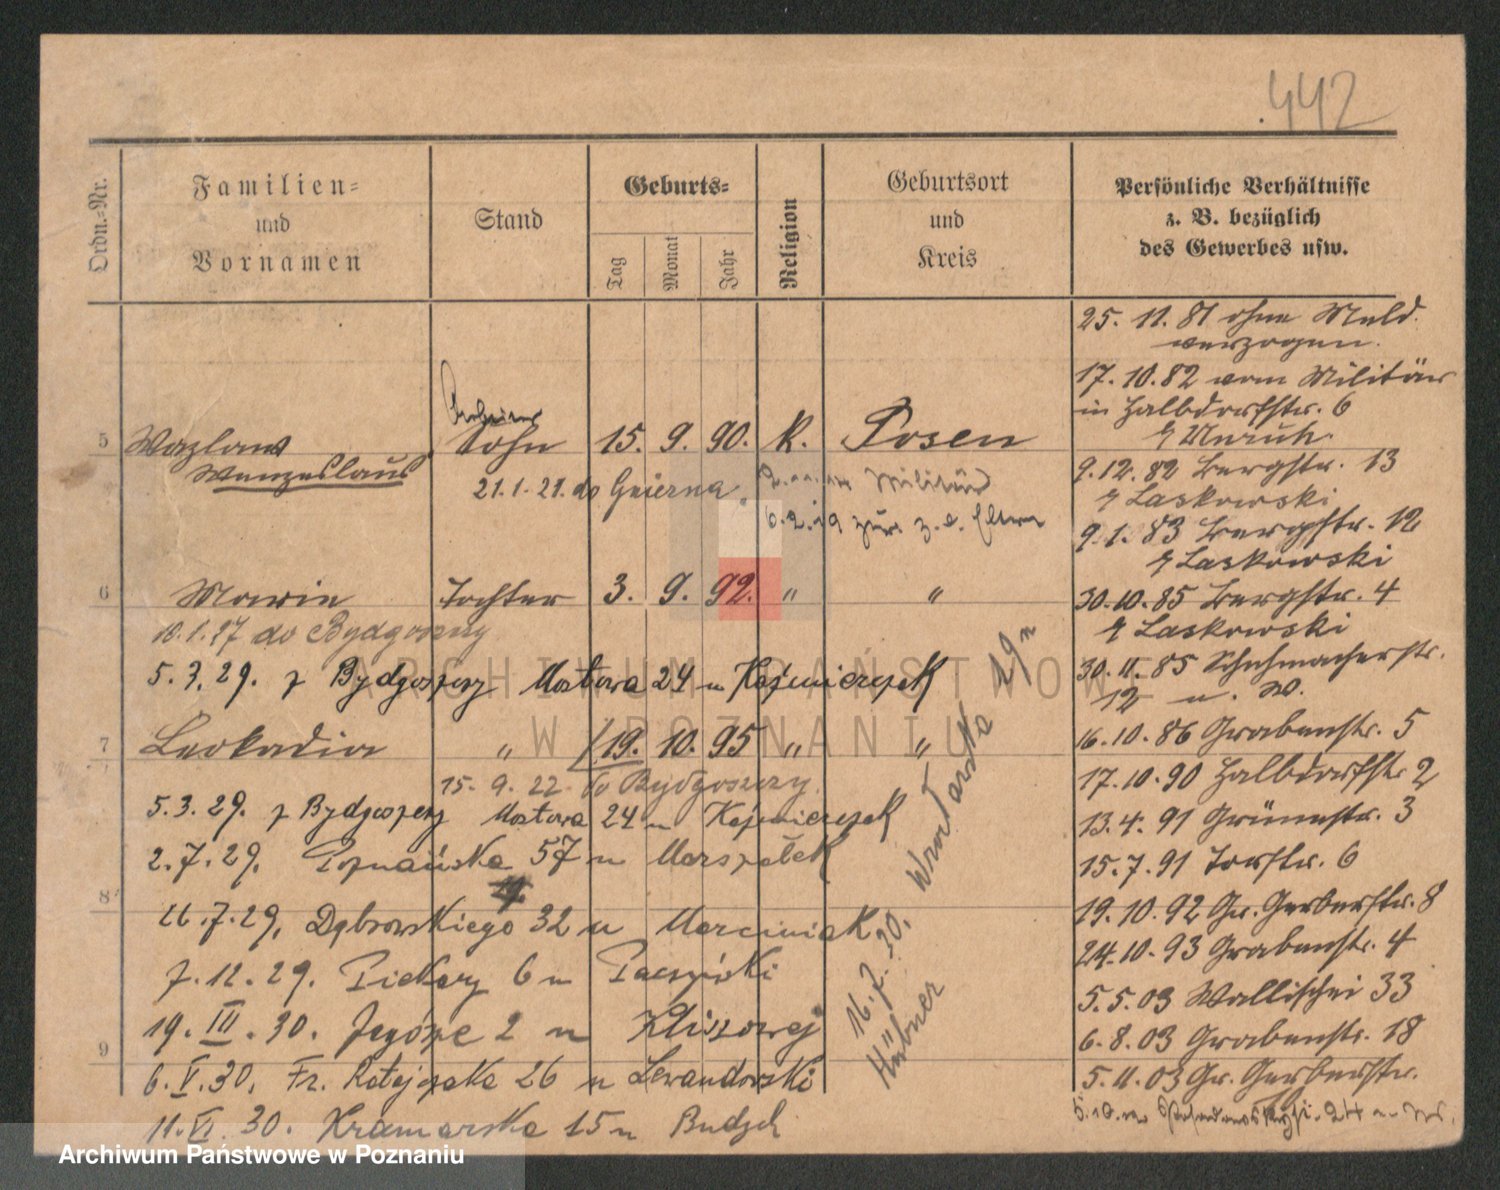 442
Ordn.-Nr.
Familien-
und
Vornamen
Stand
Geburts-
Tag
Monat
Jahr
Religion
Geburtsort
und
Kreis
Persönliche Verhältnisse
z. B. bezüglich
des Gewerbes usw.
5 Wazlaw Sohn 15. 9. 90. k. Posen
Wenzeslaus
21.1.21. do Militär
6.2.19 zur z. d. Eltern
6 Marie Tochter 3. 9. 92. " "
10.1.17 do Bydgoszczy
5.3.29. z Bydgoszczy Mostowa 24 u Kaźmierczak
7 Leokadia " 19. 10. 95 " "
15.9.22. do Bydgoszczy.
5.3.29. z Bydgoszczy Mostowa 24 u Kaźmierczak
2.7.29. Poznańska 57 u Marszałek
8
22.7.29, Dąbrowskiego 32 u Marciniak
7.12.29. Piekary 6 u
19.III.30. 2 u
9
6.V.30. Fr. Ratajczaka 26 u Lewandowski
11.VI.30. Kramarska 15 u
16.7.30. Wrocławska 29 u
Hübner
25.11.81 ohne Meld.
verzogen.
17.10.82 vom Militär
in Halbdorfstr. 6
b/ Unruh.
9.12.82 Bergstr. 13
b/ Laskowski
9.1.83 Bergstr. 12
b/ Laskowski
30.10.85 Bergstr. 4
b/ Laskowski
30.11.85 Schuhmacherstr.
12 u. W.
16.10.86 Grabenstr. 5
17.10.90 Halbdorfstr 2
13.4.91 Grünestr. 3
15.7.91 Torstr. 6
19.10.92 Gr. Gerberstr. 8
24.10.93 Grabenstr. 4
5.5.03 Wallischei 33
6.8.03 Grabenstr. 18
5.11.03 Gr. Gerberstr.
ARCHIWUM PAŃSTWOWE
W POZNANIU
Archiwum Państwowe w Poznaniu